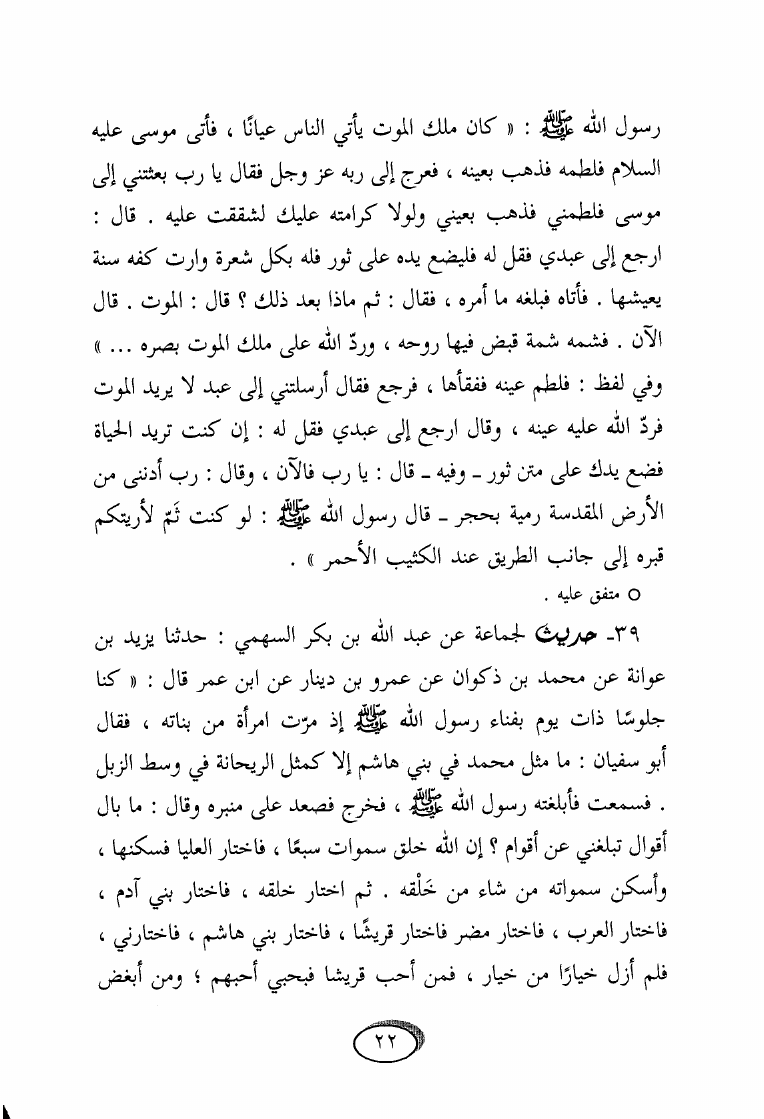 رسول الله ﷺ : « كان ملك الموت يأتي الناس عيانًا ، فأتى موسى عليه
السلام فلطمه فذهب بعينه ، فعرج إلى ربه عز وجل فقال يا رب بعثتني إلى
موسى فلطمني فذهب بعيني ولولا كرامته عليك لشققت عليه . قال :
ارجع إلى عبدي فقل له فليضع يده على ثور فله بكل شعرة وارت كفه سنة
يعيشها . فأتاه فبلغه ما أمره ، فقال : ثم ماذا بعد ذلك ؟ قال : الموت . قال
الآن . فشمه شمة قبض فيها روحه ، وردّ الله على ملك الموت بصره ... »
وفي لفظ : فلطم عينه ففقأها ، فرجع فقال أرسلتني إلى عبد لا يريد الموت
فردّ الله عليه عينه ، وقال ارجع إلى عبدي فقل له : إن كنت تريد الحياة
فضع يدك على متن ثور ـ وفيه ـ قال : يا رب فالآن ، وقال : رب أدننى من
الأرض المقدسة رمية بحجر ـ قال رسول الله ﷺ : لو كنت ثَمّ لأريتكم
قبره إلى جانب الطريق عند الكثيب الأحمر » .
○ متفق عليه .
٣٩ـ حديث لجماعة عن عبد الله بن بكر السهمي : حدثنا يزيد بن
عوانة عن محمد بن ذكوان عن عمرو بن دينار عن ابن عمر قال : « كنا
جلوسًا ذات يوم بفناء رسول الله ﷺ إذ مرّت امرأة من بناته ، فقال
أبو سفيان : ما مثل محمد في بني هاشم إلا كمثل الريحانة في وسط الزبل
. فسمعت فأبلغته رسول الله ﷺ ، فخرج فصعد على منبره وقال : ما بال
أقوال تبلغني عن أقوام ؟ إن الله خلق سموات سبعًا ، فاختار العليا فسكنها ،
وأسكن سمواته من شاء من خَلْقه . ثم اختار خلقه ، فاختار بني آدم ،
فاختار العرب ، فاختار مضر فاختار قريشًا ، فاختار بني هاشم ، فاختارني ،
فلم أزل خيارًا من خيار ، فمن أحب قريشا فبحبي أحبهم ؛ ومن أبغض
٢٢